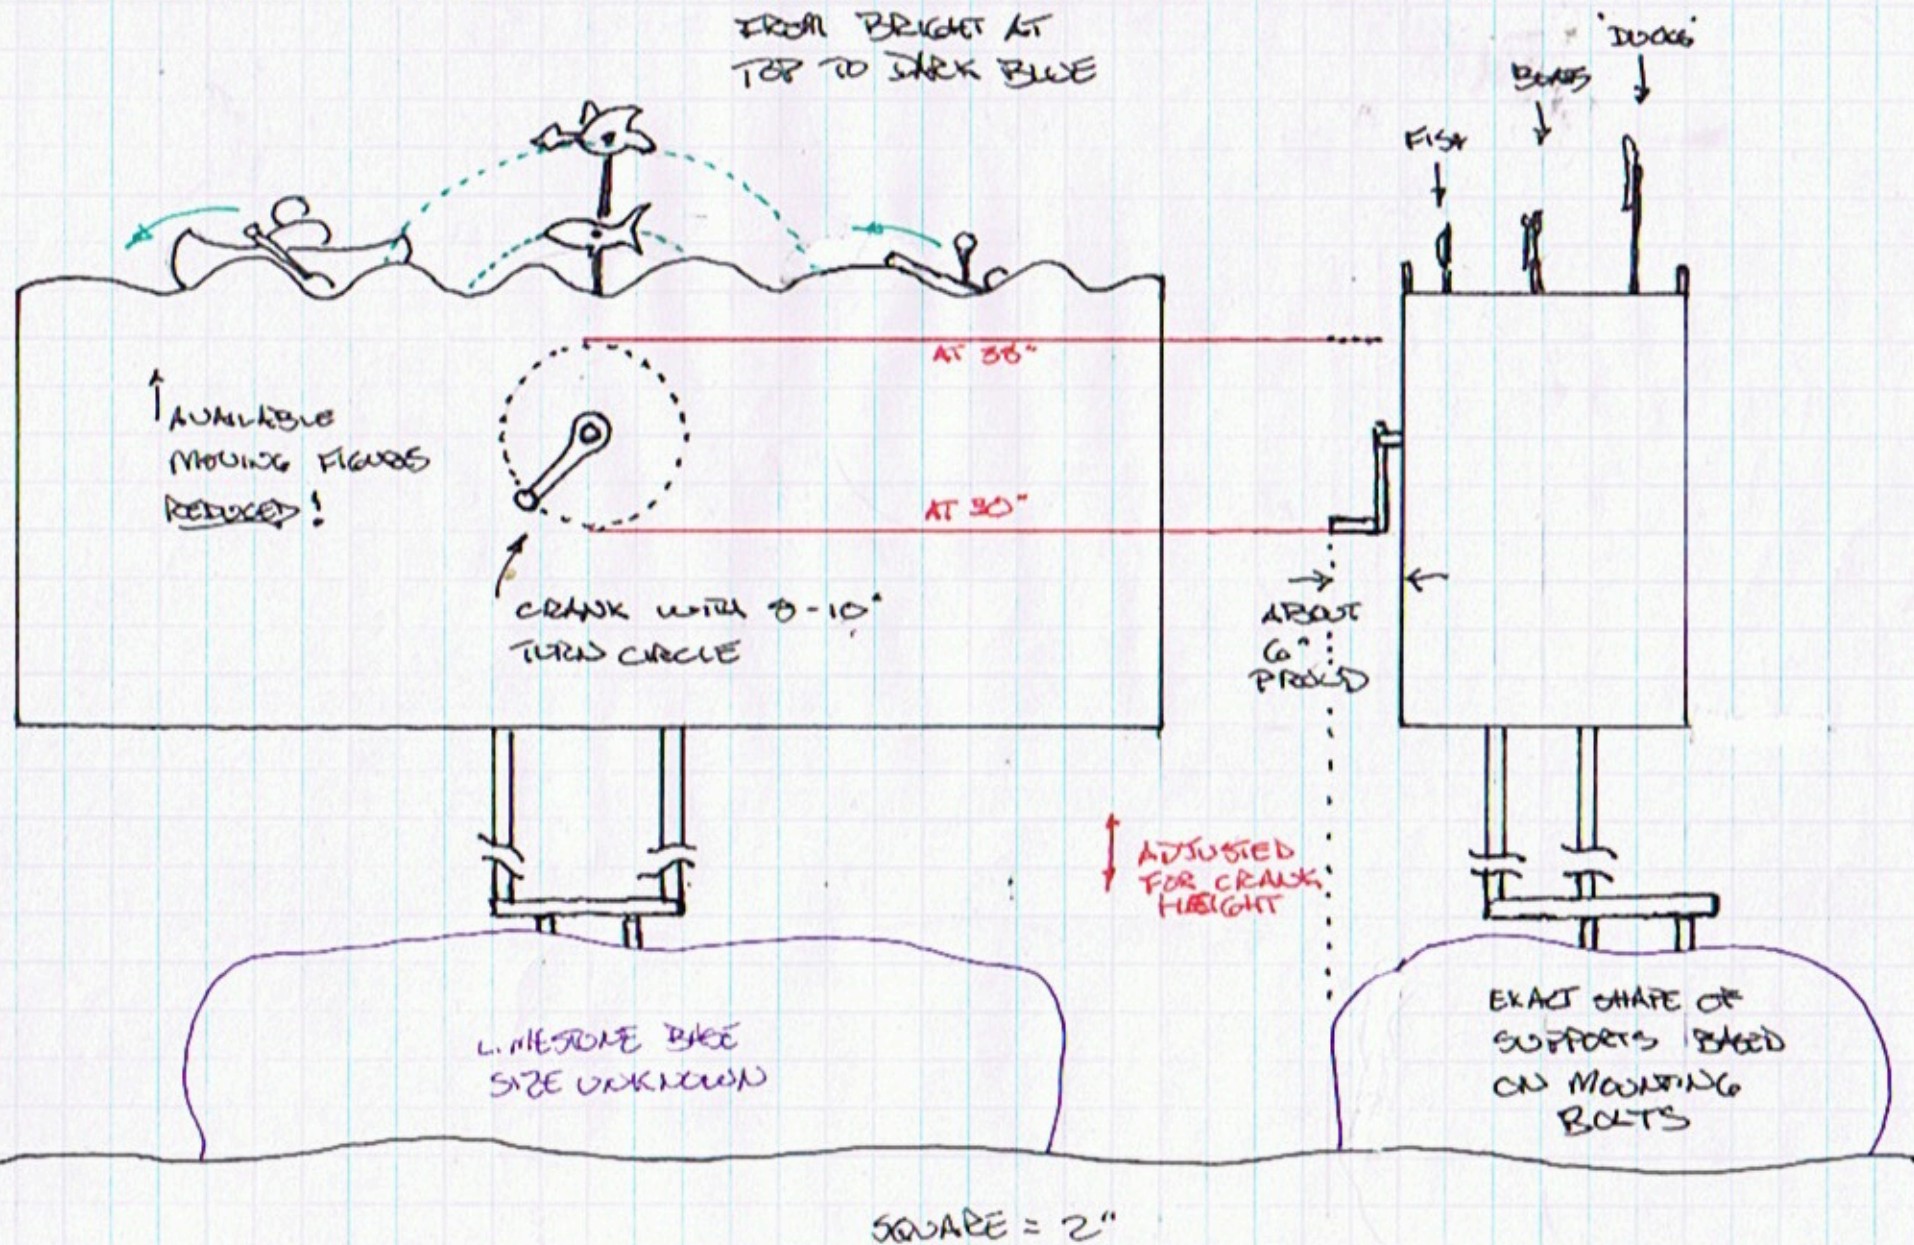 FROM BRIGHT AT
TOP TO DARK BLUE
FISH
BOATS
"DUCKS"
AT 38"
AT 30"
AVAILABLE
MOVING FIGURES
REDUCED!
CRANK WITH 8-10"
TURN CIRCLE
ABOUT
6"
PROUD
ADJUSTED
FOR CRANK
HEIGHT
LIMESTONE BASE
SIZE UNKNOWN
EXACT SHAPE OF
SUPPORTS BASED
ON MOUNTING
BOLTS
SQUARE = 2"